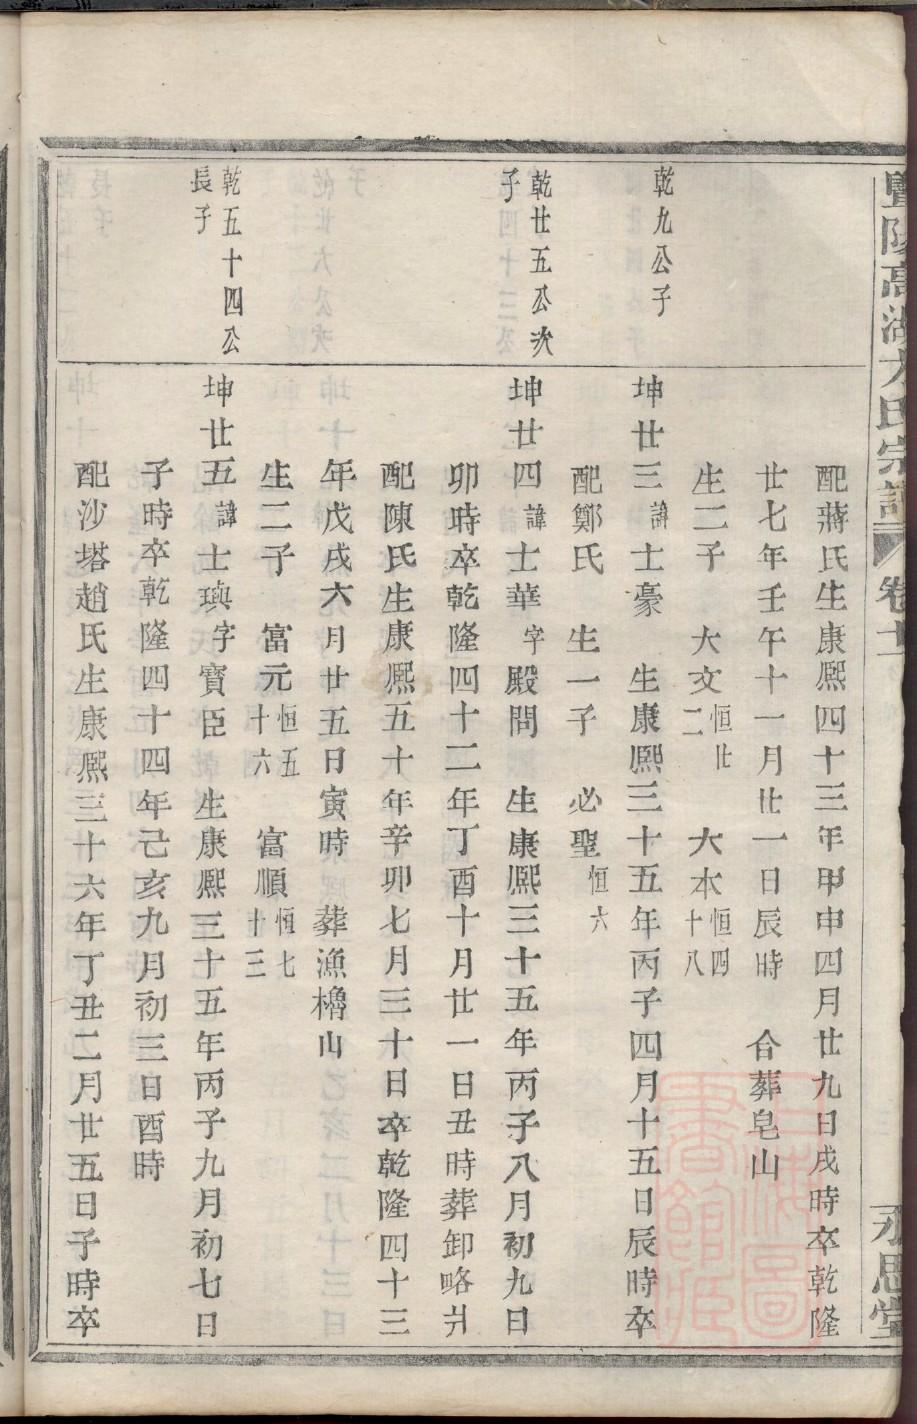 暨陽高湖方氏宗譜 卷十二 永思堂
配蔣氏生康熙四十三年甲申四月廿九日戌時卒乾隆
廿七年壬午十一月廿一日辰時 合葬皂山
生二子 大文恒廿二 大本恒四十八
乾九公子
坤廿三諱士豪 生康熙三十五年丙子四月十五日辰時卒
配鄭氏 生一子 必聖恒六
乾廿五公次子
坤廿四諱士華字殿問 生康熙三十五年丙子八月初九日
卯時卒乾隆四十二年丁酉十月廿一日丑時葬卸略爿
配陳氏生康熙五十年辛卯七月三十日卒乾隆四十三
年戊戌六月廿五日寅時 葬漁櫓山
生二子 富元恒五十六 富順恒七十三
乾五十四公長子
坤廿五諱士璵字寶臣 生康熙三十五年丙子九月初七日
子時卒乾隆四十四年己亥九月初三日酉時
配沙塔趙氏生康熙三十六年丁丑二月廿五日子時卒